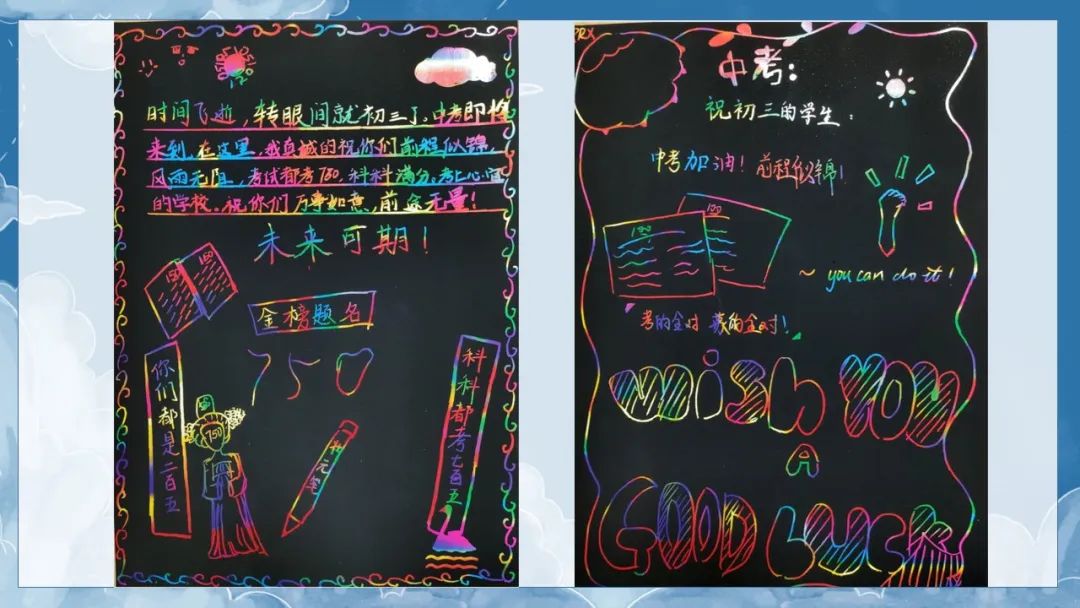 时间飞逝，转眼间就初三了。中考即将
来到，在这里，我真诚的祝你们前程似锦，
风雨无阻，考试都考750，科科满分。考上心
的学校。祝你们万事如意，前途无量！
未来可期！
150 150
金榜题名
750
你们都是二百五
750
状元笔
科科都考七百五
PRX
中考：
祝初三的学生：
中考加油！前程似锦！
~ you can do it!
考的全对 蒙的全对！
WiSh YOU
A
GOOD LUCK